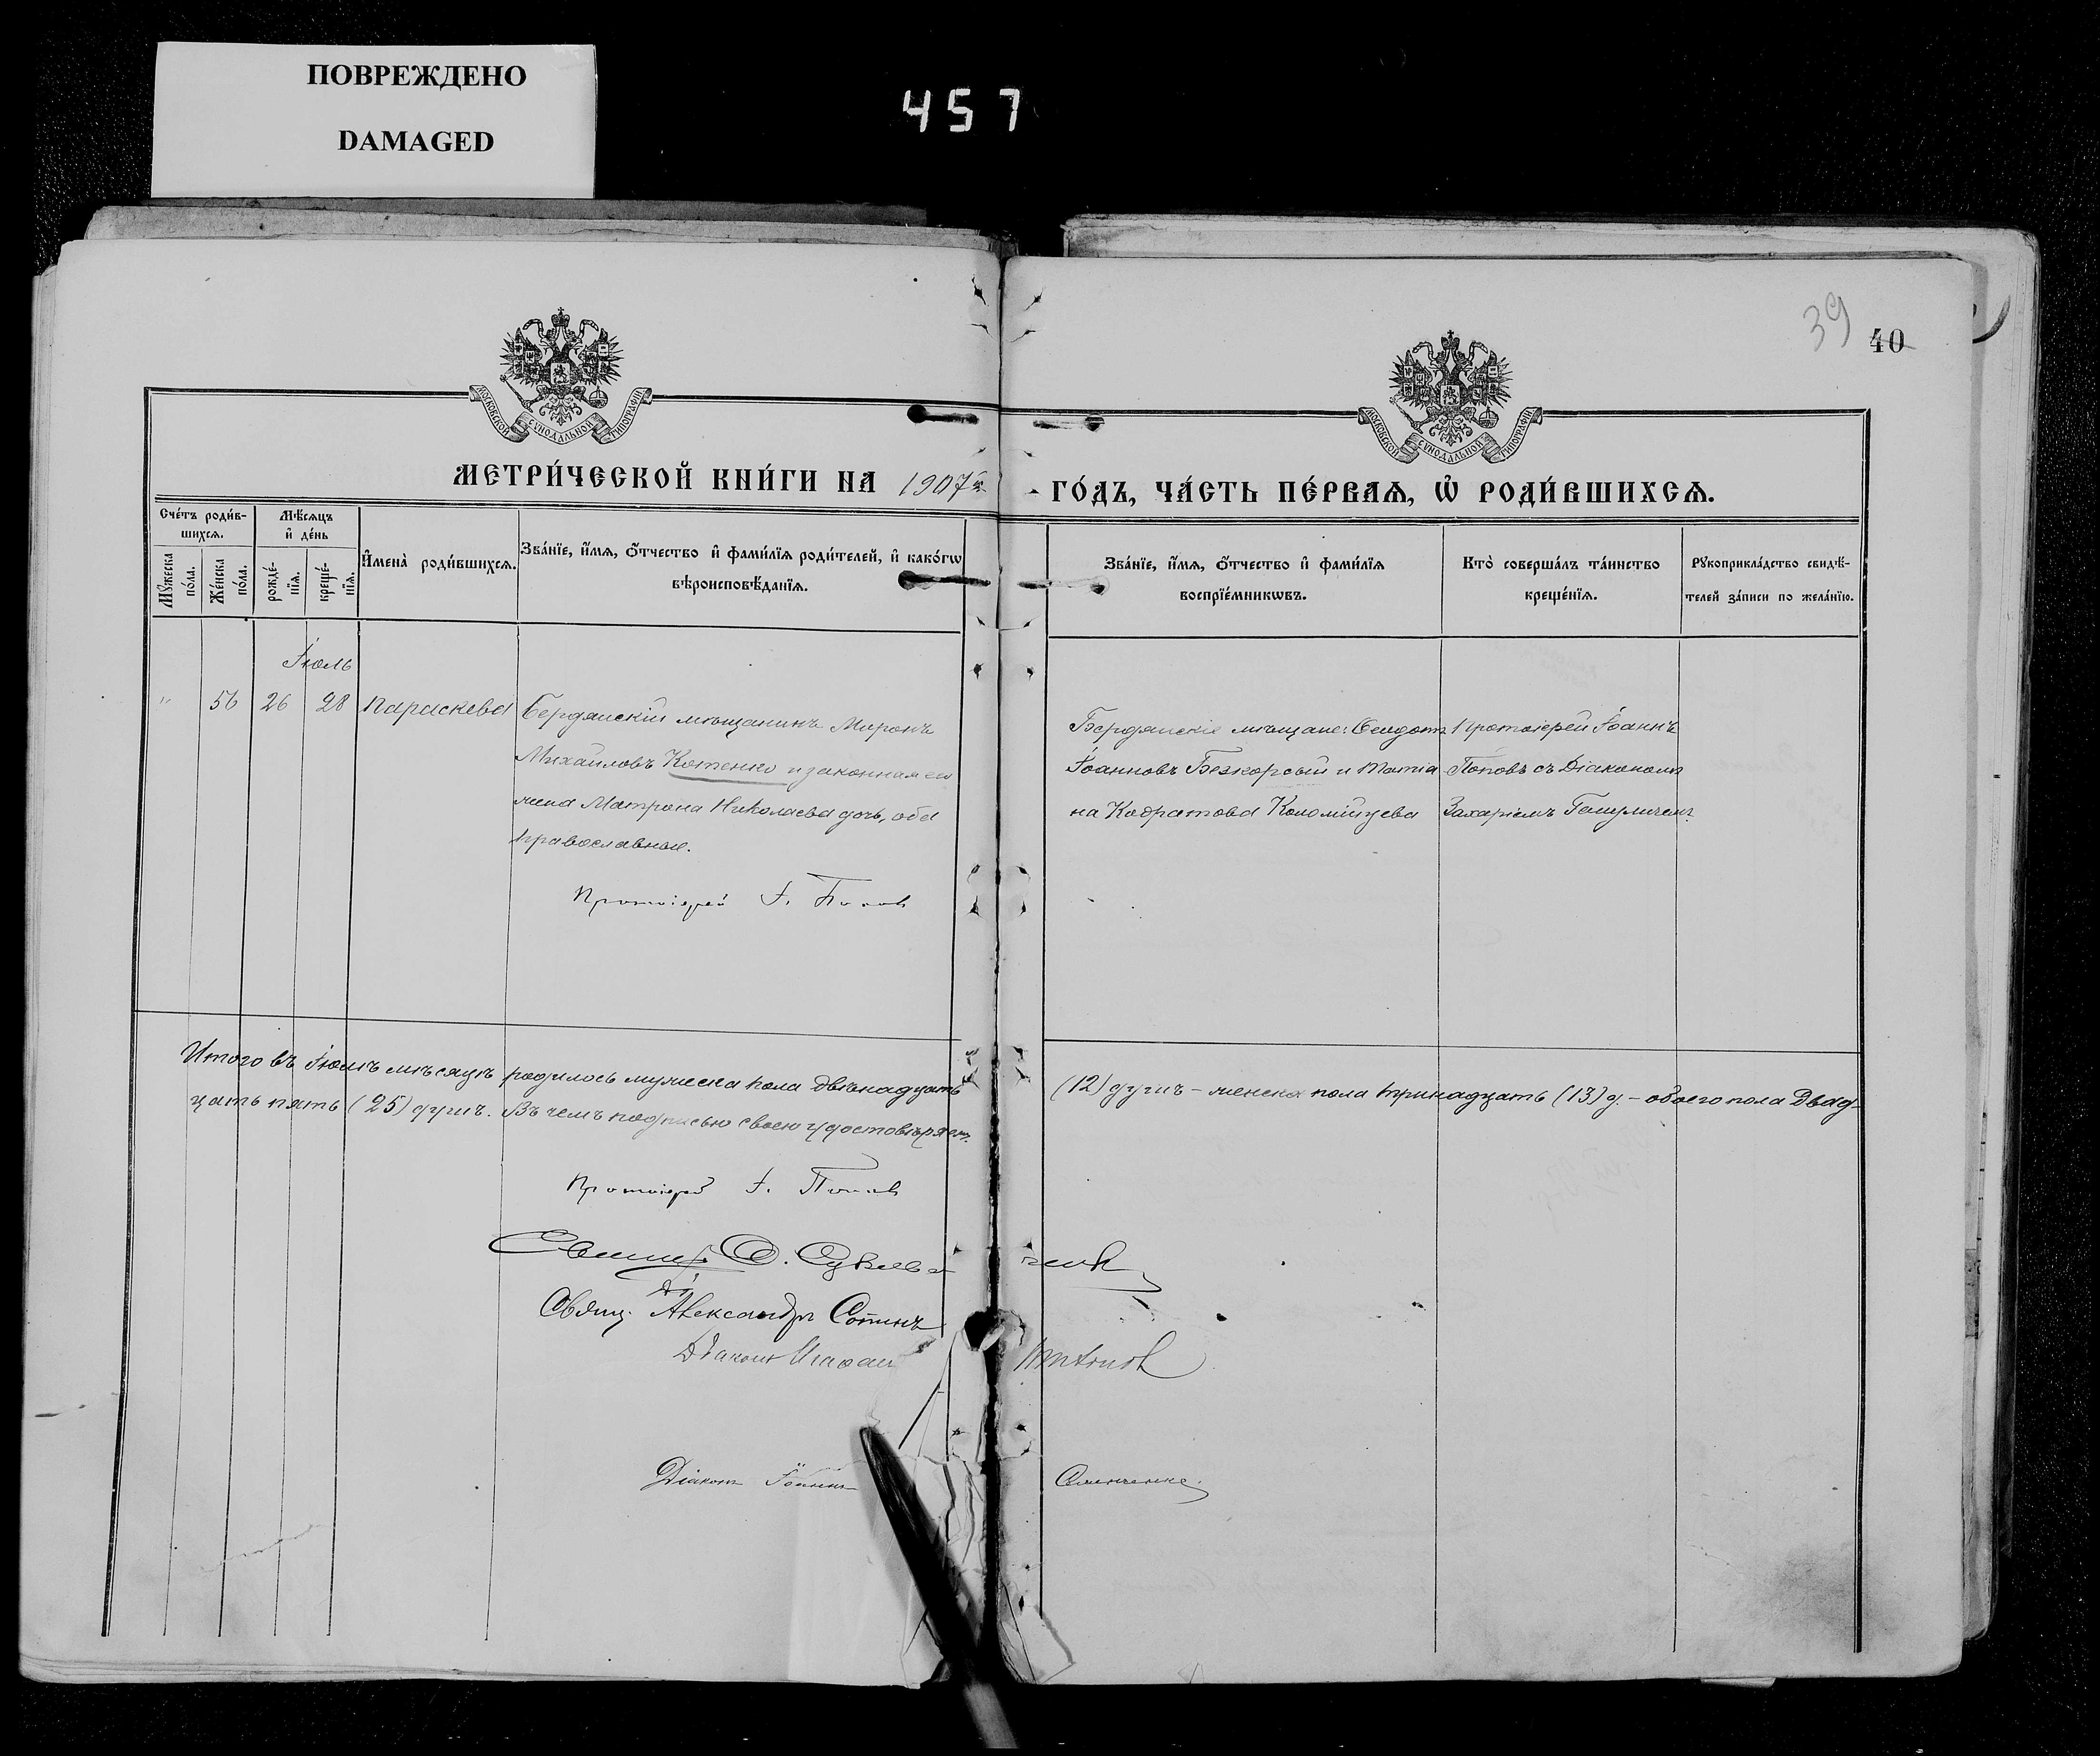 ПОВРЕЖДЕНО
DAMAGED
457
39 40
МОСКОВСКОЙ СѴНОДАЛЬНОЙ ТИПОГРАФІИ
МОСКОВСКОЙ СѴНОДАЛЬНОЙ ТИПОГРАФІИ
МЕТРИ́ЧЕСКОЙ КНИ́ГИ НА 1907й
ГО́ДЪ, ЧА́СТЬ ПЕ́РВАѦ, Ѡ҆ РОДИ́ВШИХСѦ.
Сче́тъ роди́в-
шихсѧ.
Мꙋ́жеска по́ла.
Же́нска по́ла.
Мѣ́сѧцъ
и҆ де́нь
рожде́-
нїѧ.
креще́-
нїѧ.
И҆мена̀ роди́вшихсѧ.
Зва́нїе, и҆́мѧ, ѻ҆́тчество и҆ фами́лїѧ роди́телей, и҆ како́гѡ
вѣроисповѣ́данїѧ.
Зва́нїе, и҆́мѧ, ѻ҆́тчество и҆ фами́лїѧ
воспрїе́мникѡвъ.
Кто̀ соверша́лъ та́инство
креще́нїѧ.
Рꙋкоприкла́дство свидѣ́-
телей за́писи по жела́нїю.
Іюль
" 56 26 28 Параскева
Бердянскій мѣщанинъ Миронъ
Михаиловъ Котенко и законная его
жена Матрона Николаева дочь, оба
православные.
Протоіерей І. Попов
Бердянскіе мѣщане: Ѳеодотъ
Іоанновъ Безкорсый и Татіа
на Кодратова Коломійцева
Протоіерей Іоаннъ
Поповъ съ Діакономъ
Захаріемъ
Итого въ Іюлѣ мѣсяцѣ родилось мужеска пола двѣнадцать
(12) душъ – женска пола тринадцать (13) д. – обоего пола двад-
цать пять (25) душъ. Въ чемъ подписью своею удостовѣряемъ.
Протоіерей І. Попов
Свящ. Александръ Сопинъ
Діаконъ
Діаконъ Іоаннъ Семенченко